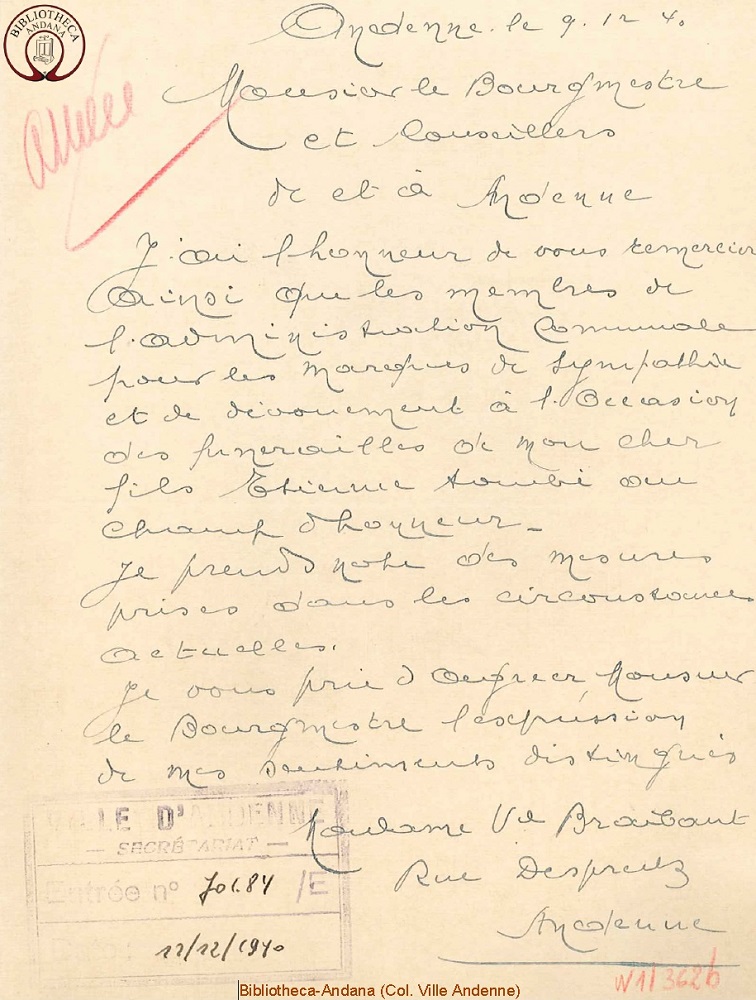 BIBLIOTHECA
ANDANA
Andenne. le 9. 12 40
Monsieur le Bourgmestre
et Conseillers
de et à Andenne
J'ai l'honneur de vous remercier
ainsi que les membres de
l'administration Communale
pour les marques de Sympathie
et de dévouement à l'Occasion
des funerailles de mon cher
fils Etienne tombé au
champ d'honneur_
Je prends note des mesures
prises dans les circonstances
actuelles.
Je vous prie d'agréer Monsieur
le Bourgmestre l'expréssion
de mes sentiments distingués
Madame Ve Braibant
Rue Despreetz
Andenne
VILLE D'ANDENNE
— SECRÉTARIAT —
Entrée n° /E
Date: 12/12/1940
W1/362b
Bibliotheca-Andana (Col. Ville Andenne)